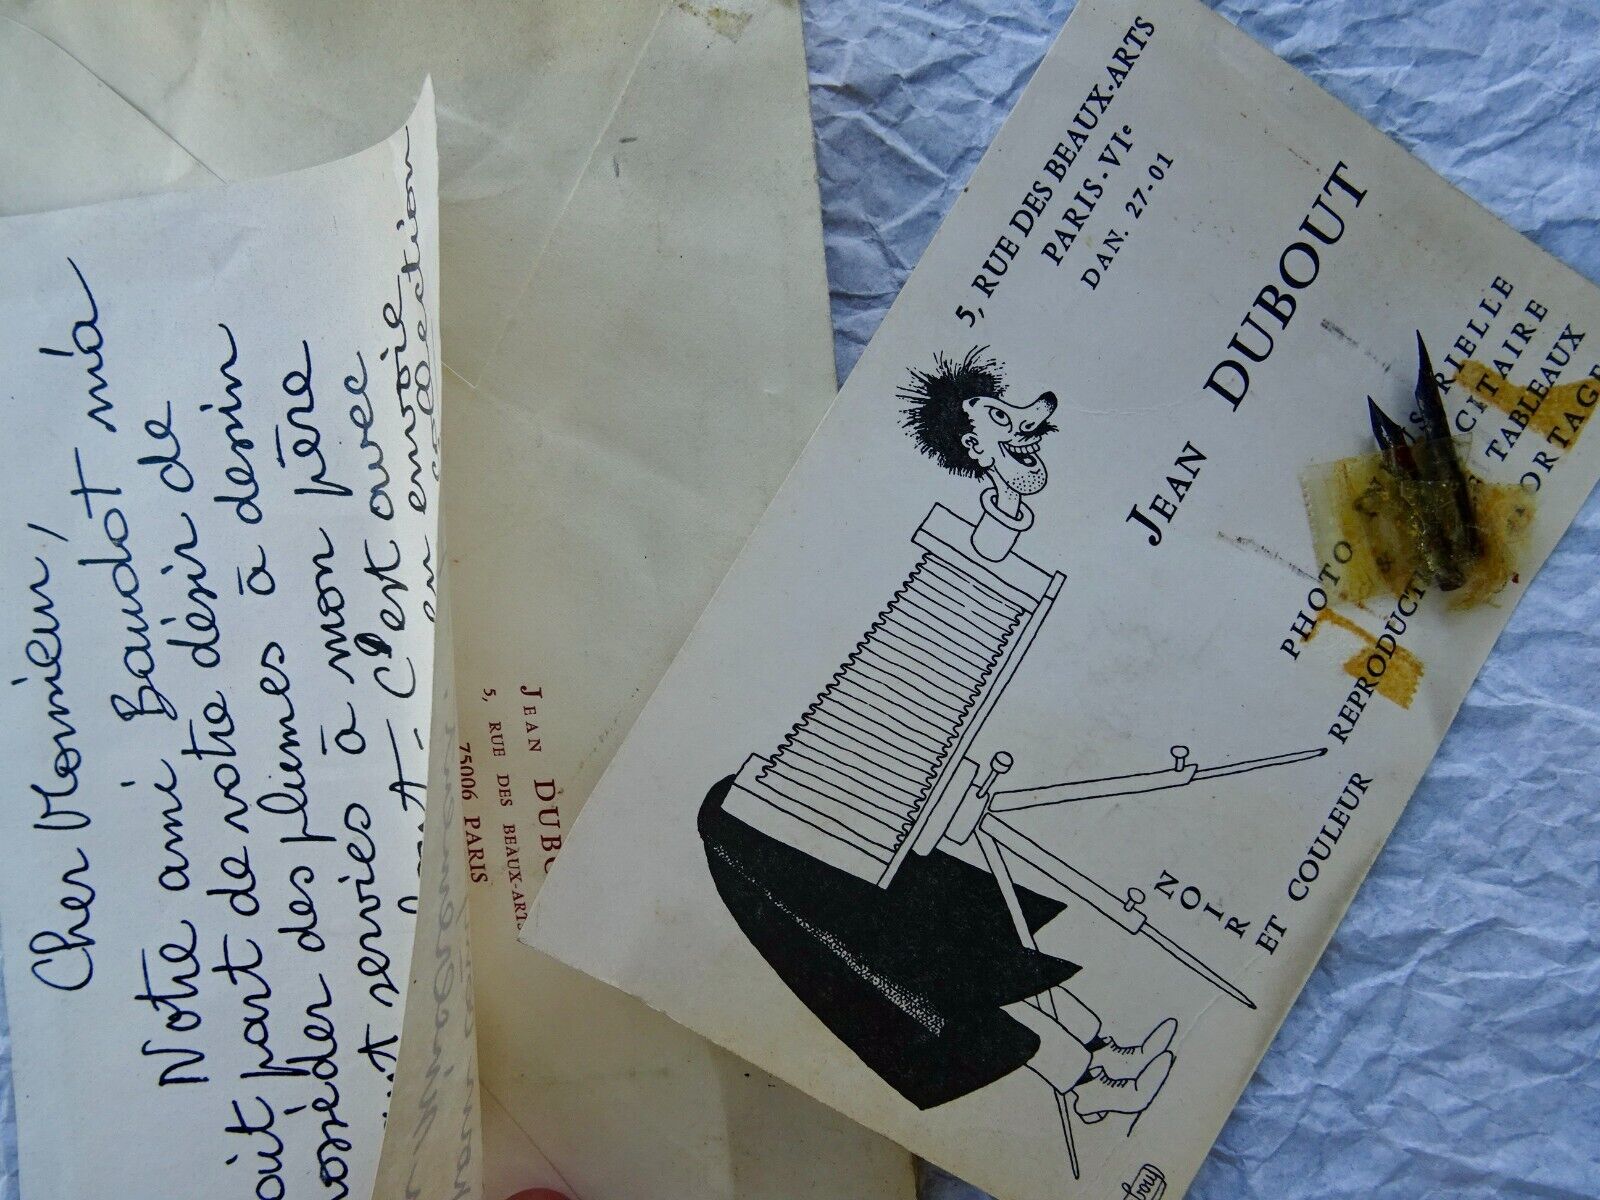 Cher Monsieur,
Notre ami Baudot m'a
fait part de votre désir de
posséder des plumes à dessin
ayant servies à mon père
C'est avec
en envoie
collection
JEAN DUBO
5, RUE DES BEAUX-ARTS
75006 PARIS
5, RUE DES BEAUX-ARTS
PARIS-VIe
DAN. 27-01
JEAN DUBOUT
PHOTO
&
RIELLE
CITAIRE
REPRODUCT
TABLEAUX
ORTAGE
NOIR
ET COULEUR